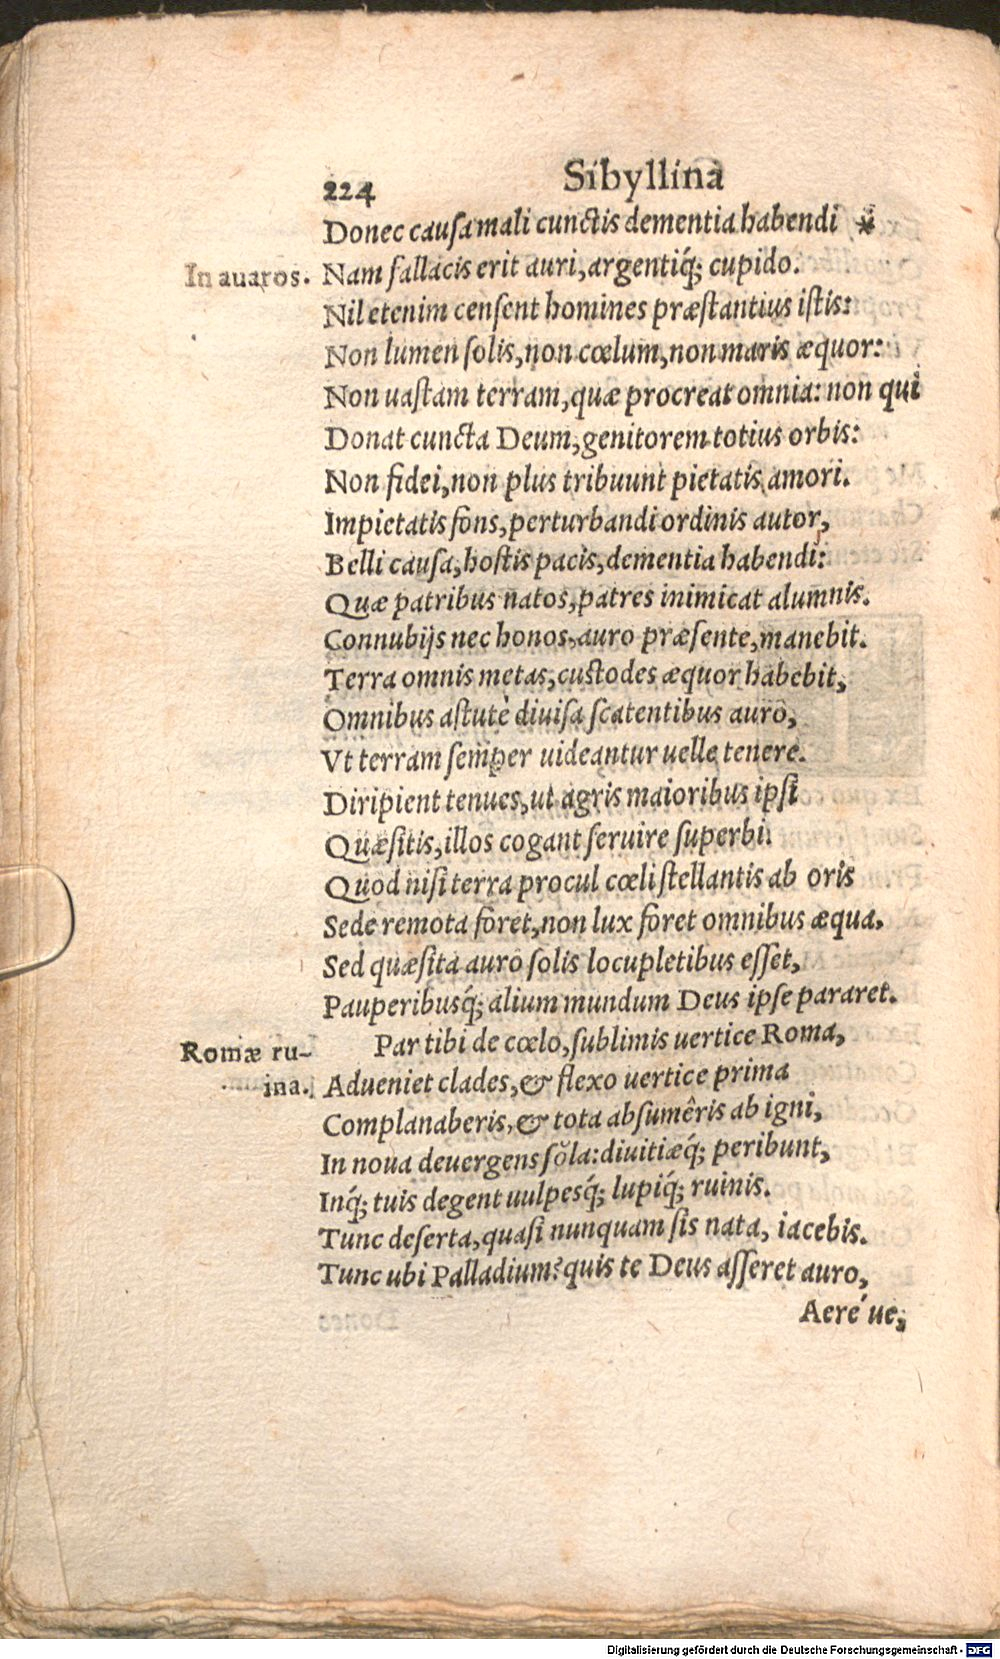 224 Sibyllina
Donec cauſa mali cunctis dementia habendi *
In auaros. Nam fallacis erit auri, argentiq́; cupido.
Nil etenim cenſent homines præſtantius iſtis:
Non lumen ſolis, non cœlum, non maris æquor:
Non uaſtam terram, quæ procreat omnia: non qui
Donat cuncta Deum, genitorem totius orbis:
Non fidei, non plus tribuunt pietatis amori.
Impietatis fons, perturbandi ordinis autor,
Belli cauſa, hoſtis pacis, dementia habendi:
Quæ patribus natos, patres inimicat alumnis.
Connubijs nec honos, auro præſente, manebit.
Terra omnis metas, cuſtodes æquor habebit,
Omnibus aſtutè diuiſa ſcatentibus auro,
Vt terram ſemper uideantur uelle tenere.
Diripient tenues, ut agris maioribus ipſi
Quæſitis, illos cogant ſeruire ſuperbi.
Quod niſi terra procul cœli ſtellantis ab oris
Sede remota foret, non lux foret omnibus æqua.
Sed quæſita auro ſolis locupletibus eſſet,
Pauperibusq́; alium mundum Deus ipſe pararet.
Romæ ru- Par tibi de cœlo, ſublimis uertice Roma,
ina. Adueniet clades, & flexo uertice prima
Complanaberis, & tota abſumêris ab igni,
In noua deuergens ſola: diuitiæq́; peribunt,
Inq́; tuis degent uulpesq́; lupiq́; ruinis.
Tunc deſerta, quaſi nunquam ſis nata, iacebis.
Tunc ubi Palladium? quis te Deus aſſeret auro,
Aere´ ue,
Digitalisierung gefördert durch die Deutsche Forschungsgemeinschaft - DFG